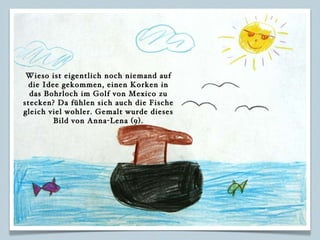 Wieso ist eigentlich noch niemand auf
die Idee gekommen, einen Korken in
das Bohrloch im Golf von Mexico zu
stecken? Da fühlen sich auch die Fische
gleich viel wohler. Gemalt wurde dieses
Bild von Anna-Lena (9).